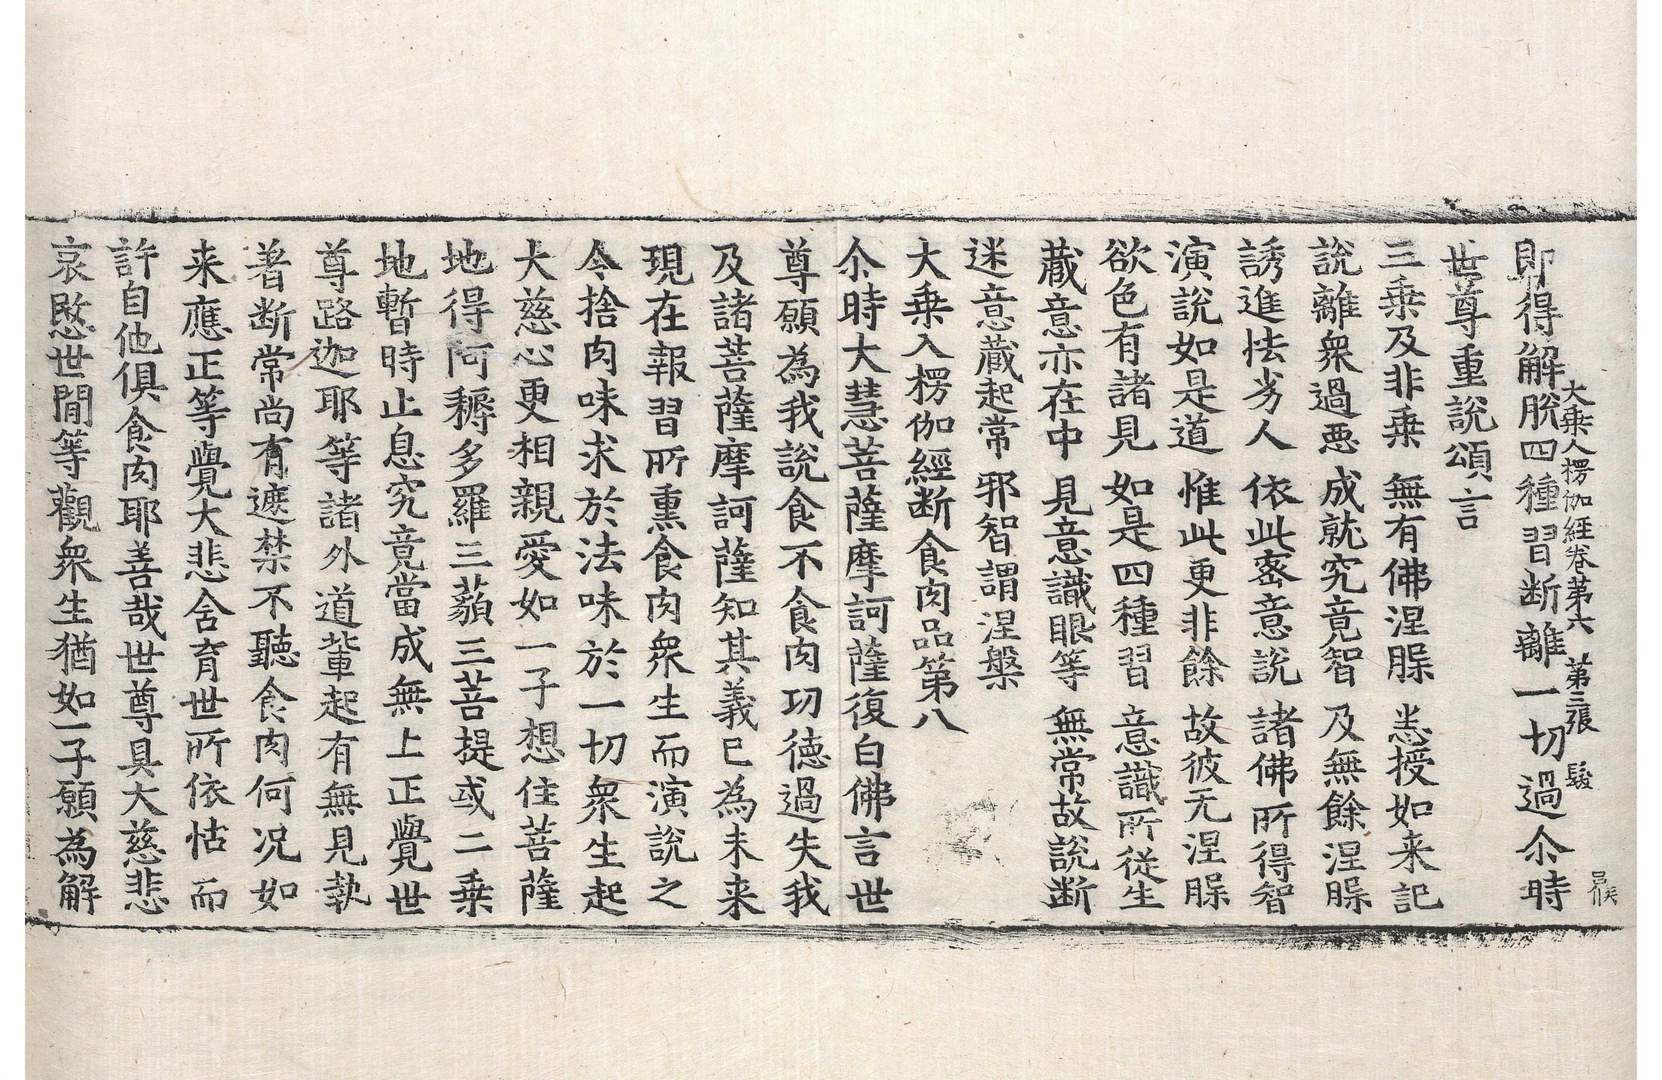 大乗入楞伽経卷第六　第三張　髮
即得解脫四種習断離一切過尒時
世尊重說頌言
三乗及非乗　無有佛涅槃　悉授如来記
說離衆過惡　成就究竟智　及無餘涅槃
誘進怯劣人　依此密意說　諸佛所得智
演說如是道　惟此更非餘　故彼无涅槃
欲色有諸見　如是四種習　意識所從生
藏意亦在中　見意識眼等　無常故說断
迷意藏起常　邪智謂涅槃
大乗入楞伽經断食肉品第八
尒時大慧菩薩摩訶薩復白佛言世
尊願為我說食不食肉功德過失我
及諸菩薩摩訶薩知其義已為未来
現在報習所熏食肉衆生而演說之
令捨肉味求於法味於一切衆生起
大慈心更相親愛如一子想住菩薩
地得阿耨多羅三藐三菩提或二乗
地暫時止息究竟當成無上正覺世
尊路迦耶等諸外道輩起有無見執
著断常尚有遮禁不聽食肉何况如
来應正等覺大悲含育世所依怙而
許自他俱食肉耶善哉世尊具大慈悲
哀愍世間等觀衆生猶如一子願為解